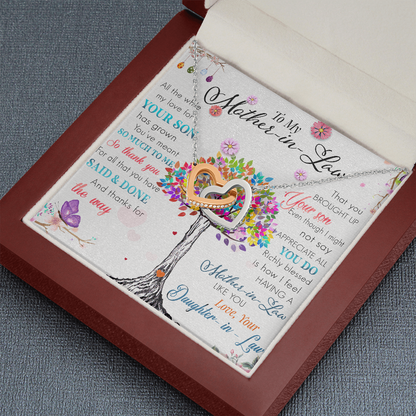 To My
Mother-in-Law
All the while
my love for
YOUR SON
has grown
You've meant
SO MUCH TO ME
So thank you
For all that you have
SAID & DONE
And thanks for
the way
That you
BROUGHT UP
Your son
Even though I might
not say
APPRECIATE ALL
YOU DO
Richly blessed
is how I feel
HAVING A
Mother-in-Law
LIKE YOU
Love, Your
Daughter-in-Law